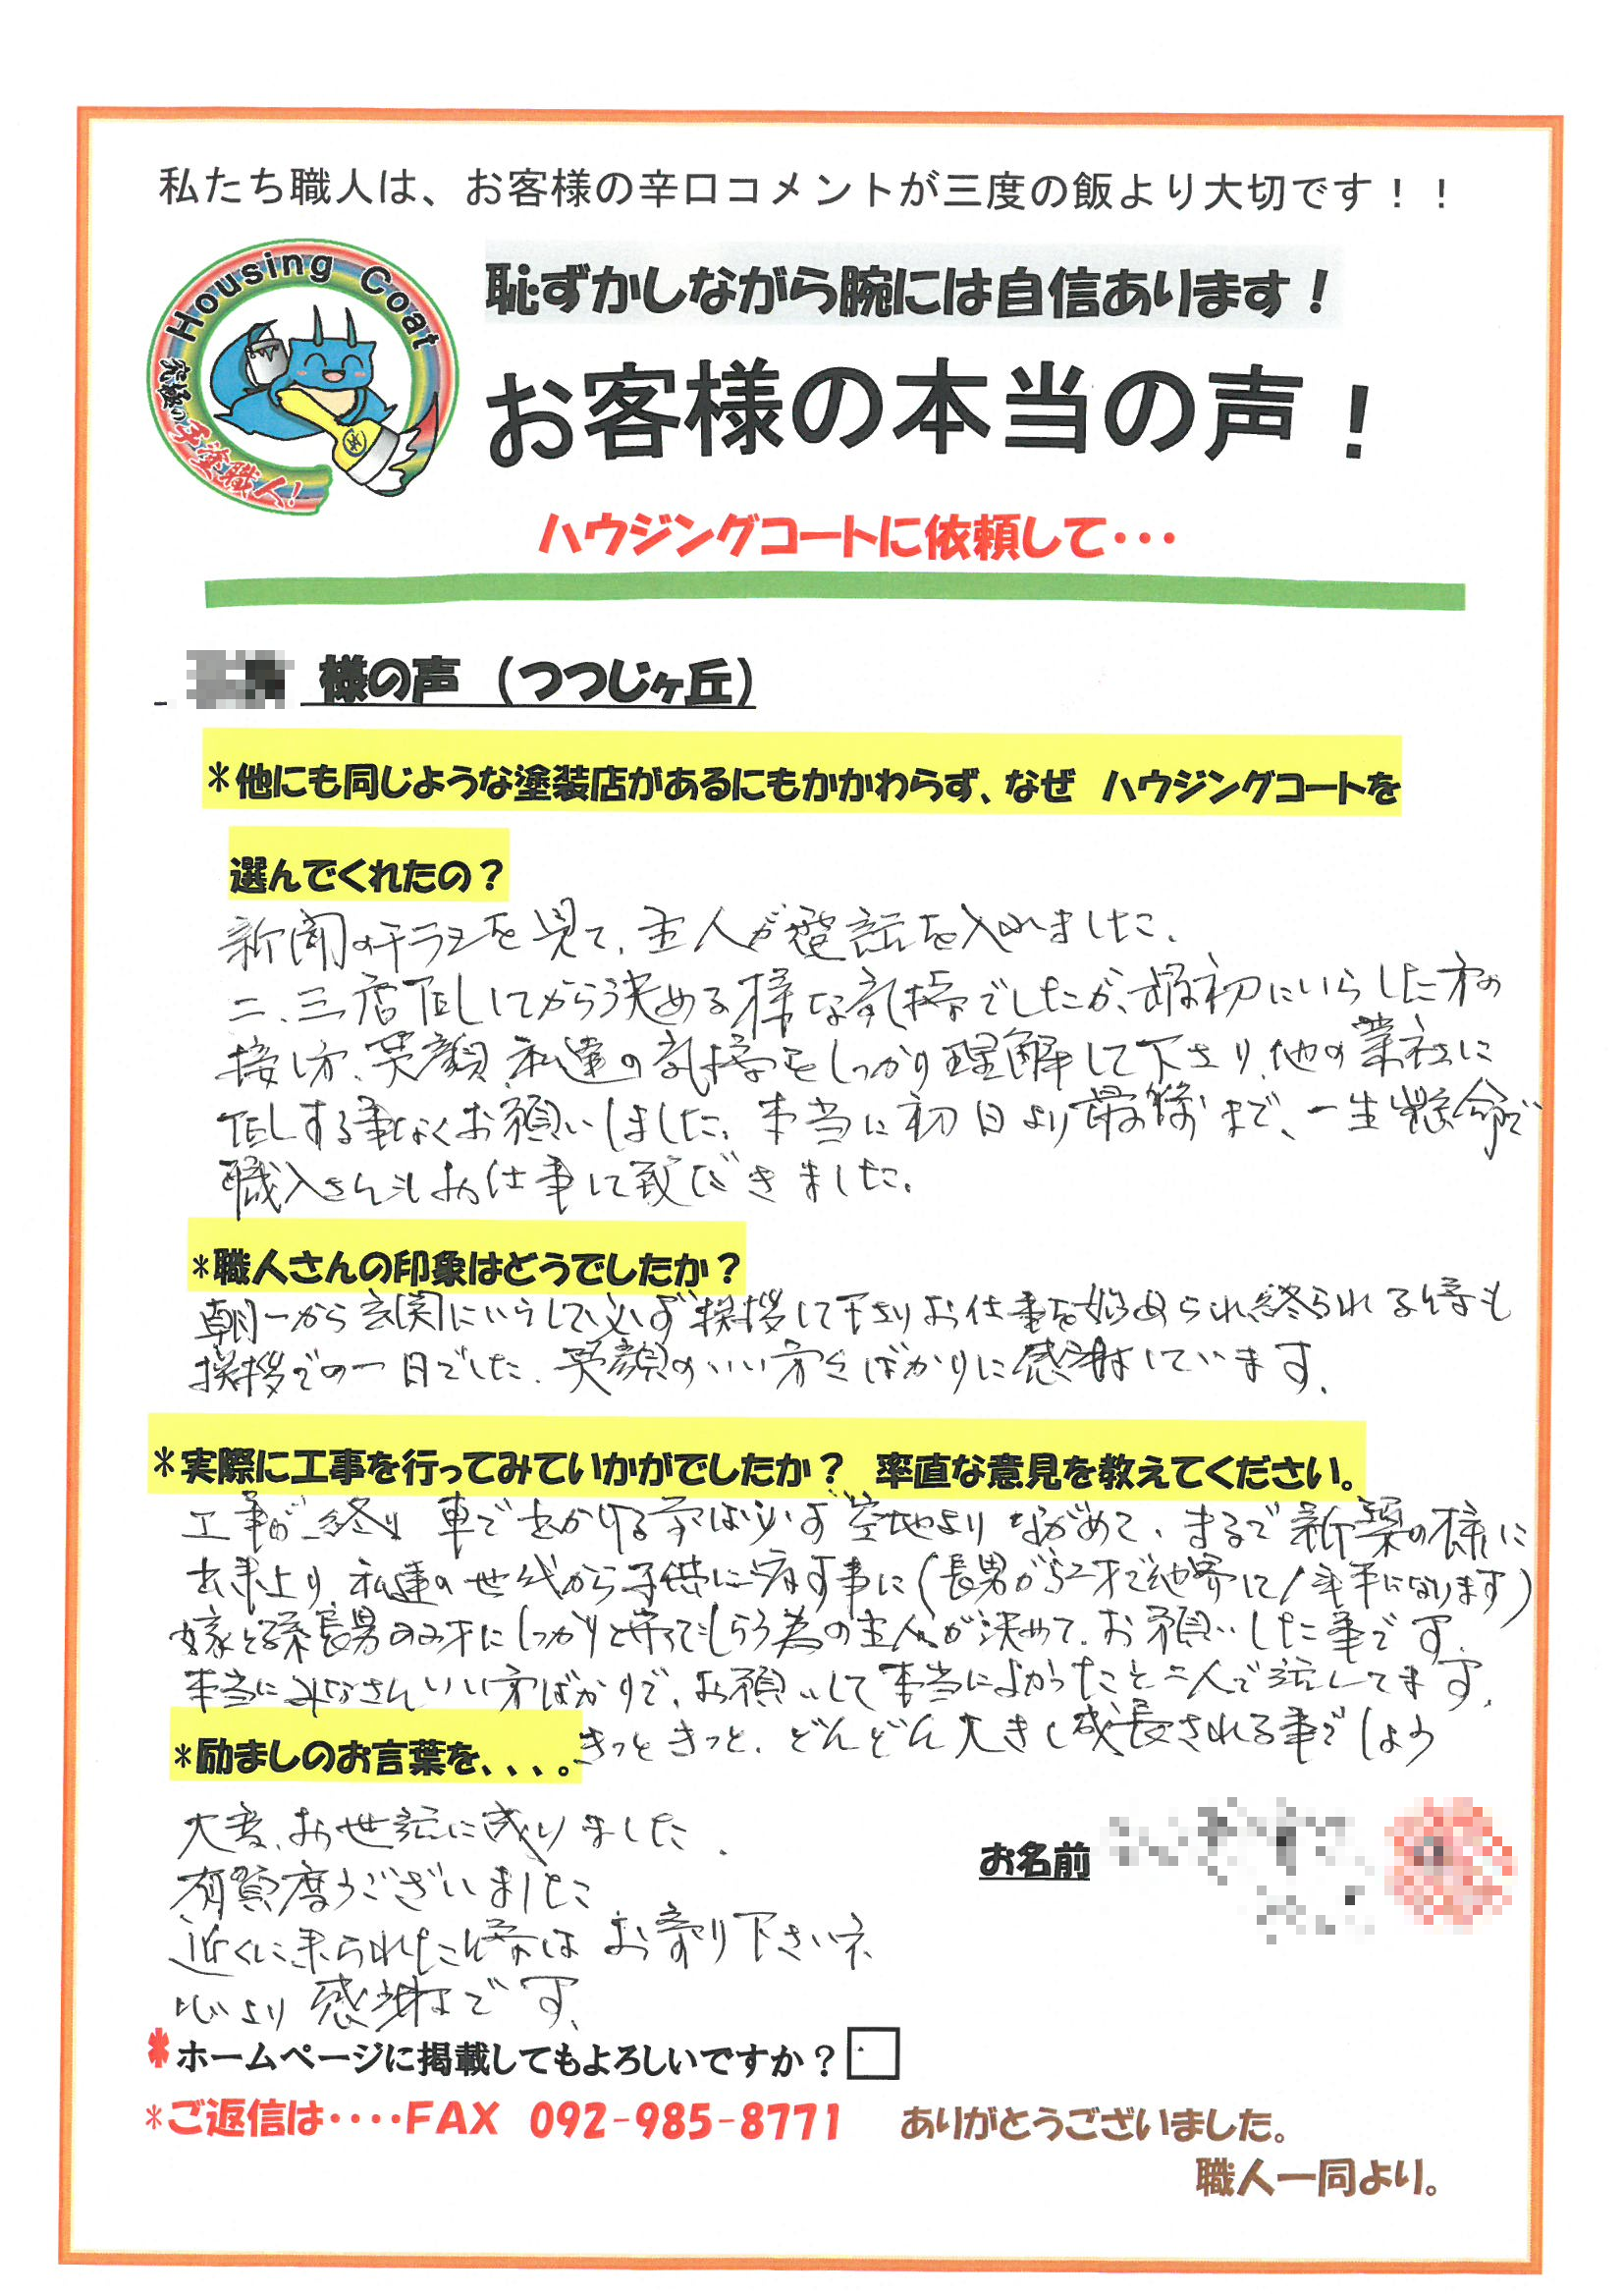 私たち職人は、お客様の辛口コメントが三度の飯より大切です！！
Housing Coat
究極の手塗職人!
恥ずかしながら腕には自信あります！
お客様の本当の声！
ハウジングコートに依頼して・・・
様の声（つつじヶ丘）
*他にも同じような塗装店があるにもかかわらず、なぜ ハウジングコートを
選んでくれたの？
新聞のチラシを見て、主人が電話を入れました。
二、三店 してから決める様な気持でしたが、最初にいらした方の
接し方、笑顔、私達の気持をしっかり理解して下さり、他の業社に
する事なくお願いしました。本当に初日より最後まで、一生懸命で
職人さんもお仕事して致だきました。
*職人さんの印象はどうでしたか？
朝一から玄関にいらして必ず挨拶して下さりお仕事を始められ、終られる時も
挨拶での一日でした。笑顔のいい方々ばかりに感謝しています。
*実際に工事を行ってみていかがでしたか？ 率直な意見を教えてください。
工事が終り 車で出かける前は必ず空地よりながめて、まるで新築の様に
出来上り、私達の世代から子供に渡す事に（長男が 才で他界して1年半になります）
嫁と孫 長男の 才にしっかりと守ってもらう為の主人が決めて、お願いした事です。
本当にみなさんいい方ばかりで、お願いして本当によかったと二人で話してます。
*励ましのお言葉を、、、。きっときっと、どんどん大きく成長される事でしょう
大変、お世話に成りました。
有賀度うございました
お名前
近くに来られた時はお寄り下さいネ
心より感謝です。
*ホームページに掲載してもよろしいですか？
*ご返信は・・・・FAX 092-985-8771 ありがとうございました。
職人一同より。